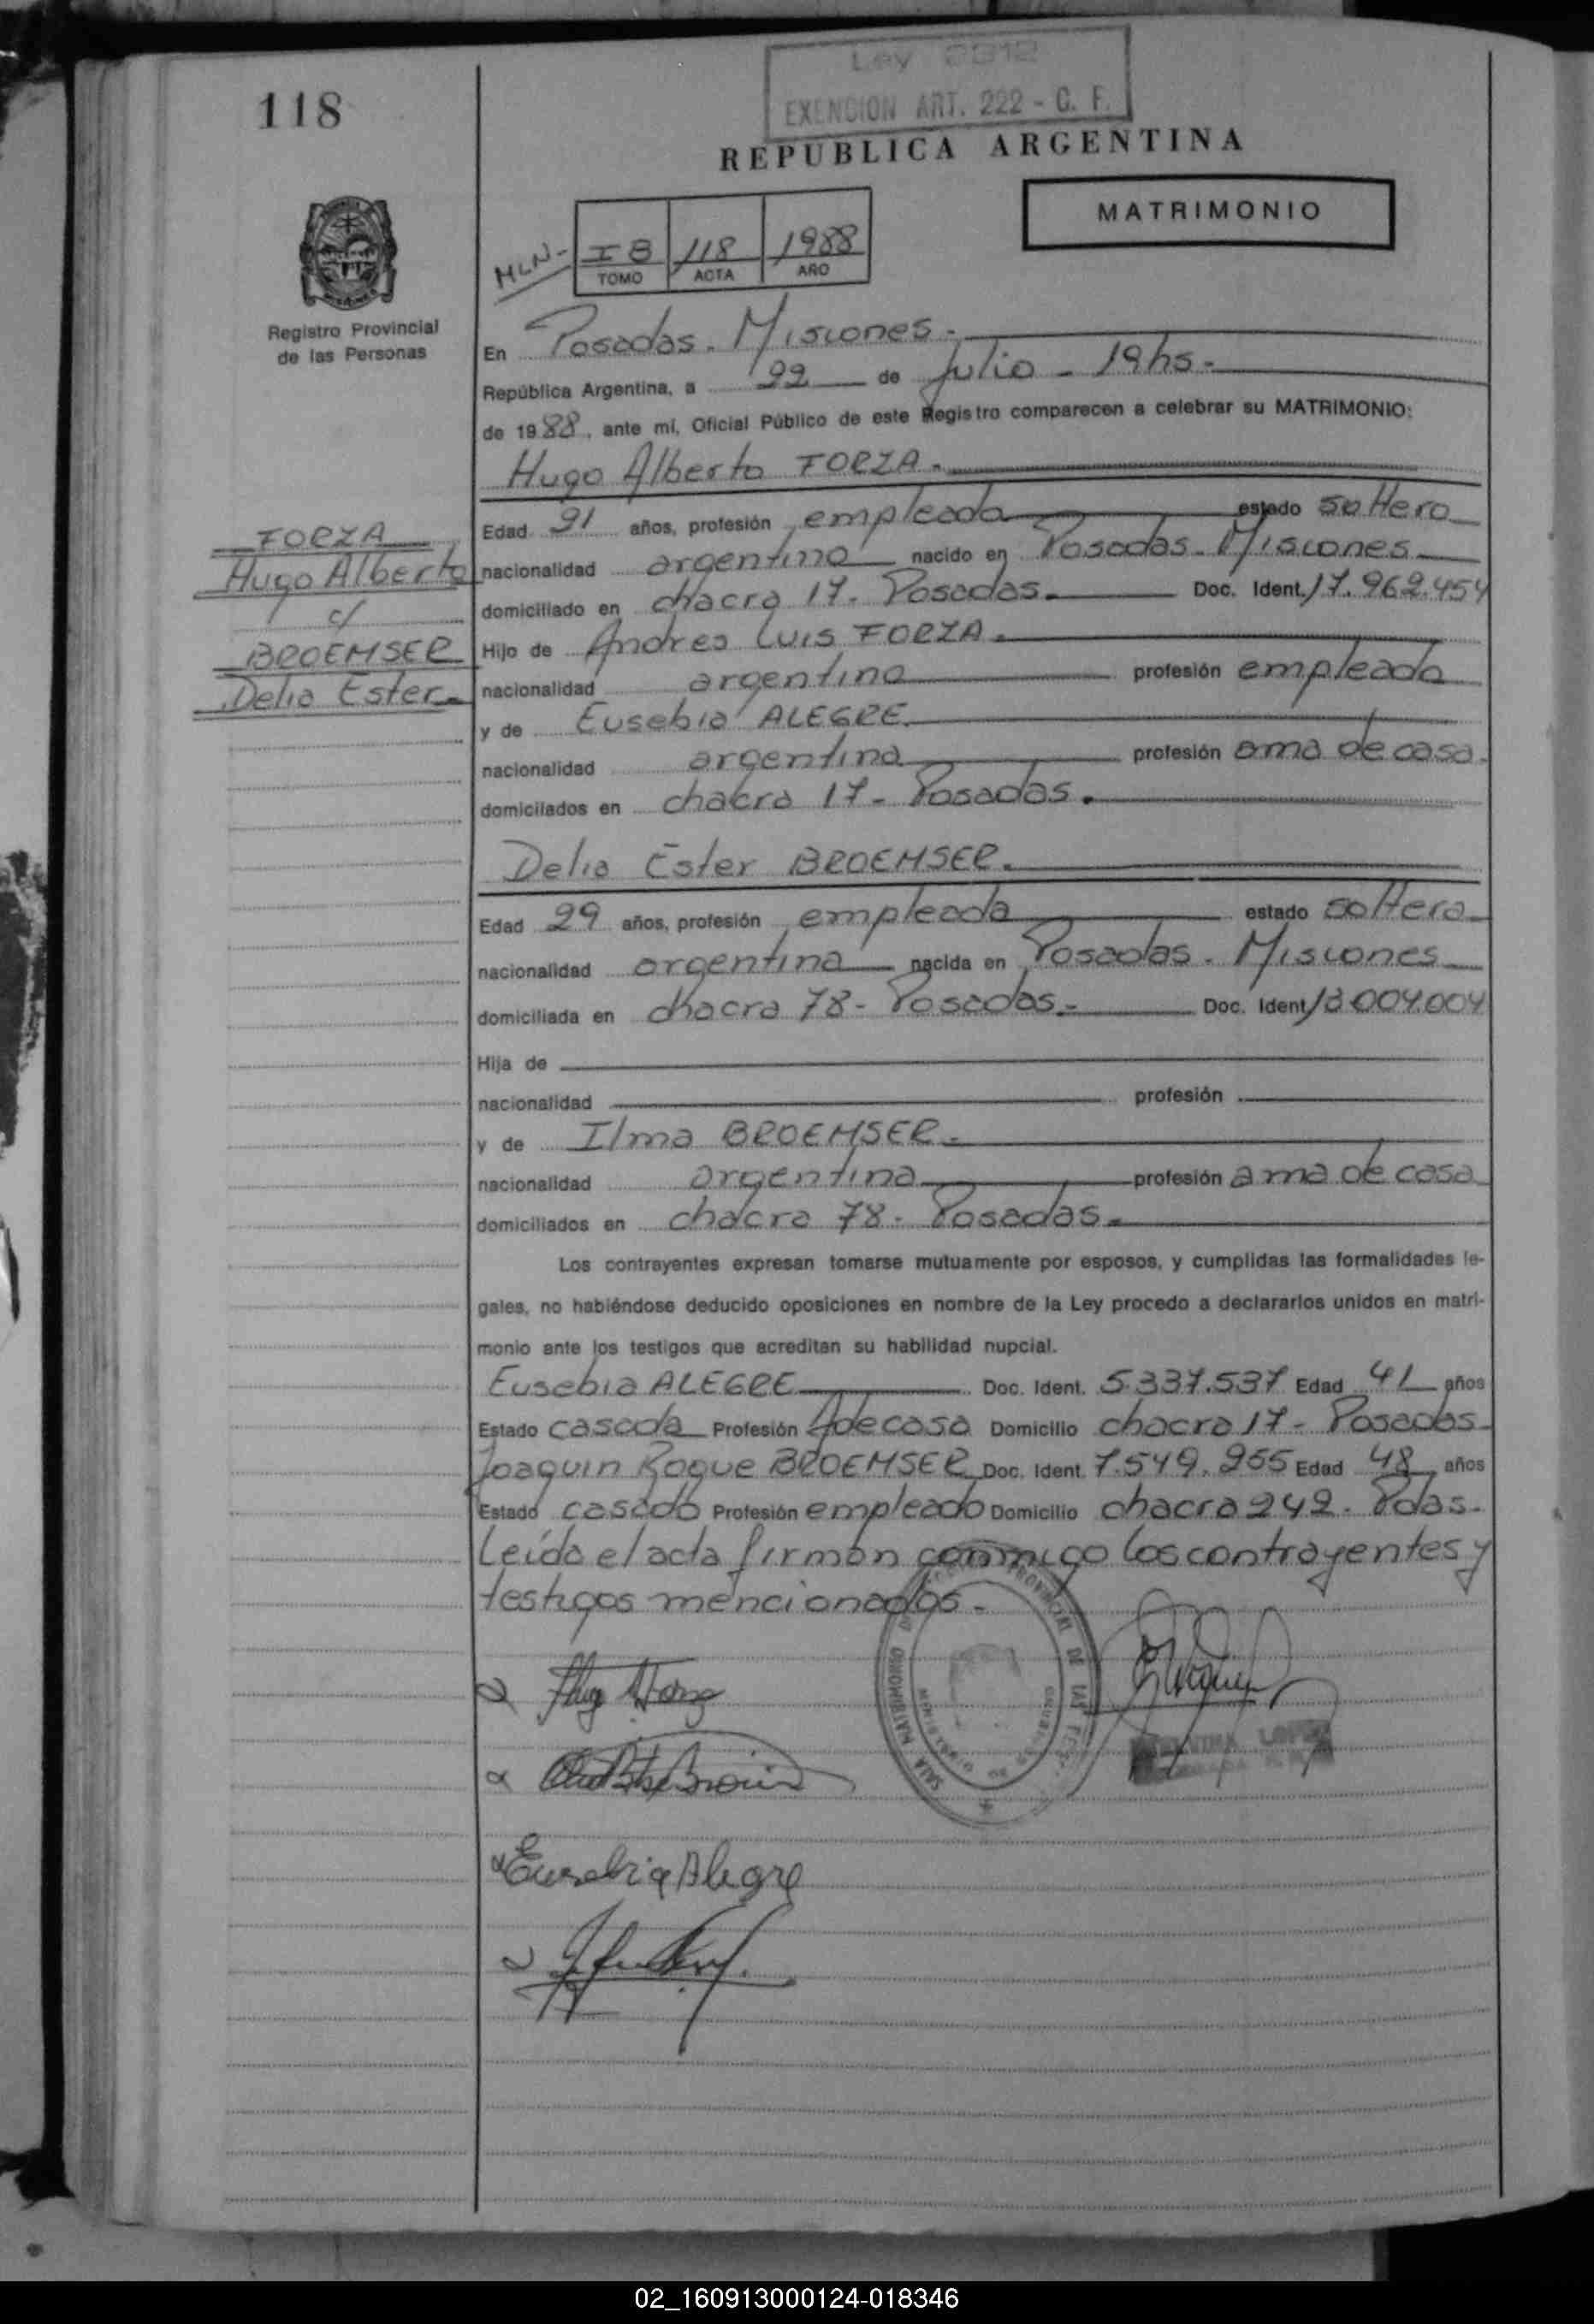 Ley 2312
EXENCION ART. 222 - C. F.
118
REPUBLICA ARGENTINA
MATRIMONIO
MLN-
I 8 118 1988
TOMO ACTA AÑO
Registro Provincial
de las Personas
En Posadas. Misiones.
República Argentina, a 22 de Julio - 19hs.
de 1988, ante mí, Oficial Público de este Registro comparecen a celebrar su MATRIMONIO:
Hugo Alberto FORZA.
FORZA
Hugo Alberto
c/
BROEMSER
Delia Ester
Edad 21 años, profesión empleado estado soltero
nacionalidad argentino nacido en Posadas. Misiones
domiciliado en chacra 17. Posadas. Doc. Ident. 17.962.454
Hijo de Andres Luis FORZA.
nacionalidad argentino profesión empleado
y de Eusebia ALEGRE.
nacionalidad argentina profesión ama de casa.
domiciliados en chacra 17- Posadas.
Delia Ester BROEMSER.
Edad 29 años, profesión empleada estado soltera
nacionalidad argentina nacida en Posadas. Misiones
domiciliada en chacra 78- Posadas.- Doc. Ident 13.004.004
Hija de
nacionalidad profesión
y de Ilma BROEMSER.
nacionalidad argentina profesión ama de casa
domiciliados en chacra 78- Posadas.
Los contrayentes expresan tomarse mutuamente por esposos, y cumplidas las formalidades le-
gales, no habiéndose deducido oposiciones en nombre de la Ley procedo a declararlos unidos en matri-
monio ante los testigos que acreditan su habilidad nupcial.
Eusebia ALEGRE Doc. Ident. 5.337.537 Edad 41 años
Estado casada Profesión A de casa Domicilio chacra 17- Posadas-
Joaquin Roque BROEMSER Doc. Ident. 7.549.955 Edad 48 años
Estado casado Profesión empleado Domicilio chacra 242. Pdas.
Leída el acta firman conmigo los contrayentes y
testigos mencionados.-
SALA MATRIMONIO
Eusebia Alegre
02_160913000124-018346